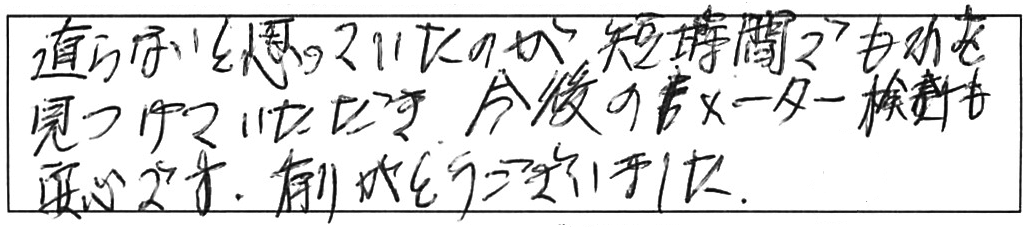 直らないと思っていたのが短時間でもれを
見つけていただき 今後のメーター検針も
安心です.有りがとうございました.